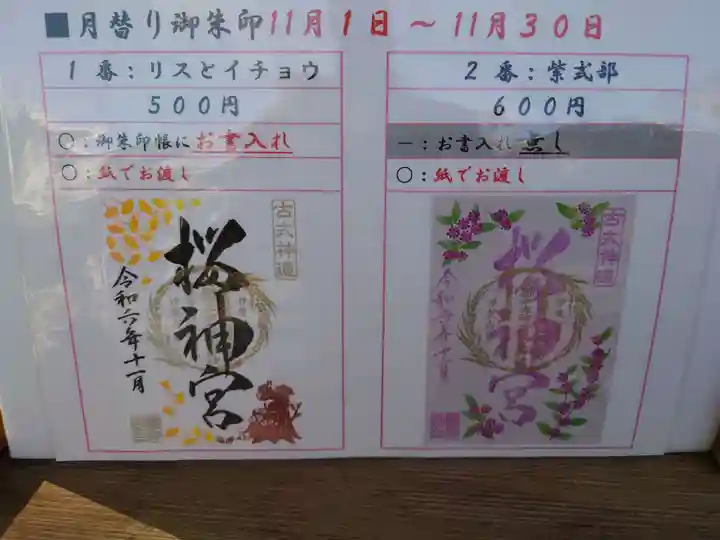 ■月替り御朱印11月1日 ～ 11月30日
1 番：リスとイチョウ
500円
○：御朱印帳にお書入れ
○：紙でお渡し
古式神道
桜神宮
令和六年十一月
2 番：紫式部
600円
－：お書入れ無し
○：紙でお渡し
古式神道
桜神宮
令和六年十一月